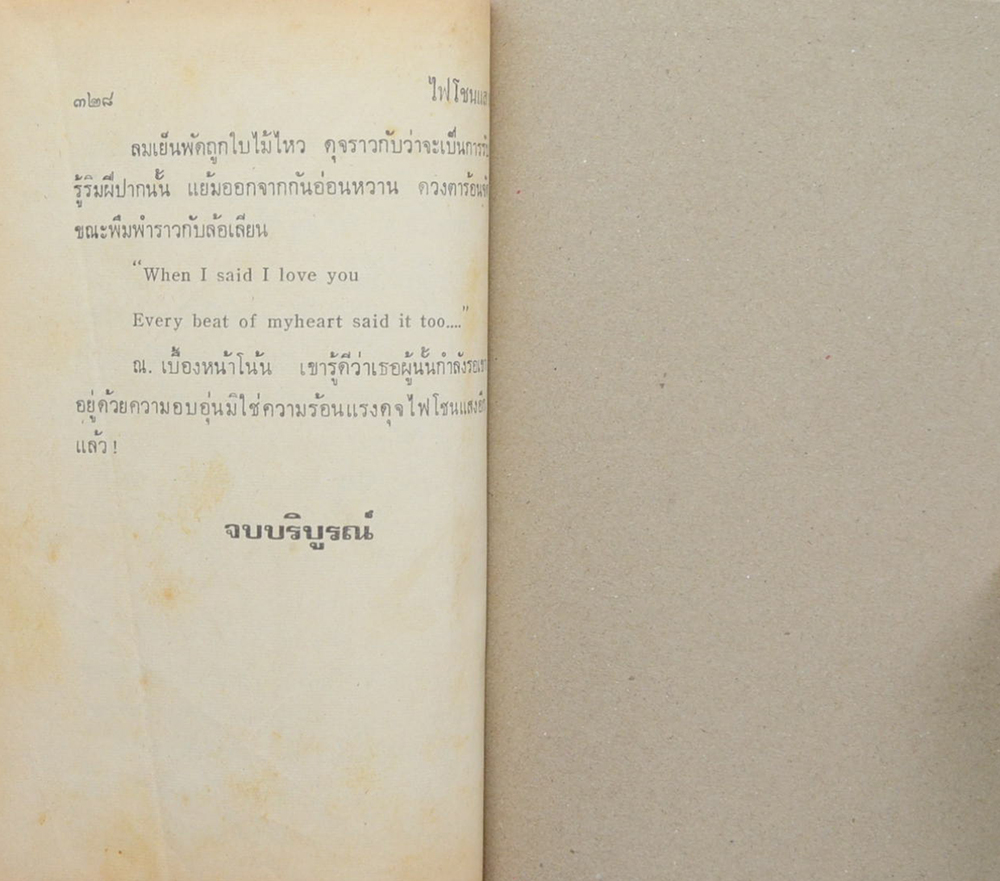 ๓๒๘ ไฟโชนแสง
ลมเย็นพัดถูกใบไม้ไหว ดุจราวกับว่าจะเป็นการ
รู้ริมฝีปากนั้น แย้มออกจากกันอ่อนหวาน ดวงตาร้อน
ขณะพึมพำราวกับล้อเลียน
"When I said I love you
Every beat of myheart said it too...."
ณ. เบื้องหน้าโน้น เขารู้ดีว่าเธอผู้นั้นกำลังรอ
อยู่ด้วยความอบอุ่นมิใช่ความร้อนแรงดุจไฟโชนแสง
แล้ว !
จบบริบูรณ์